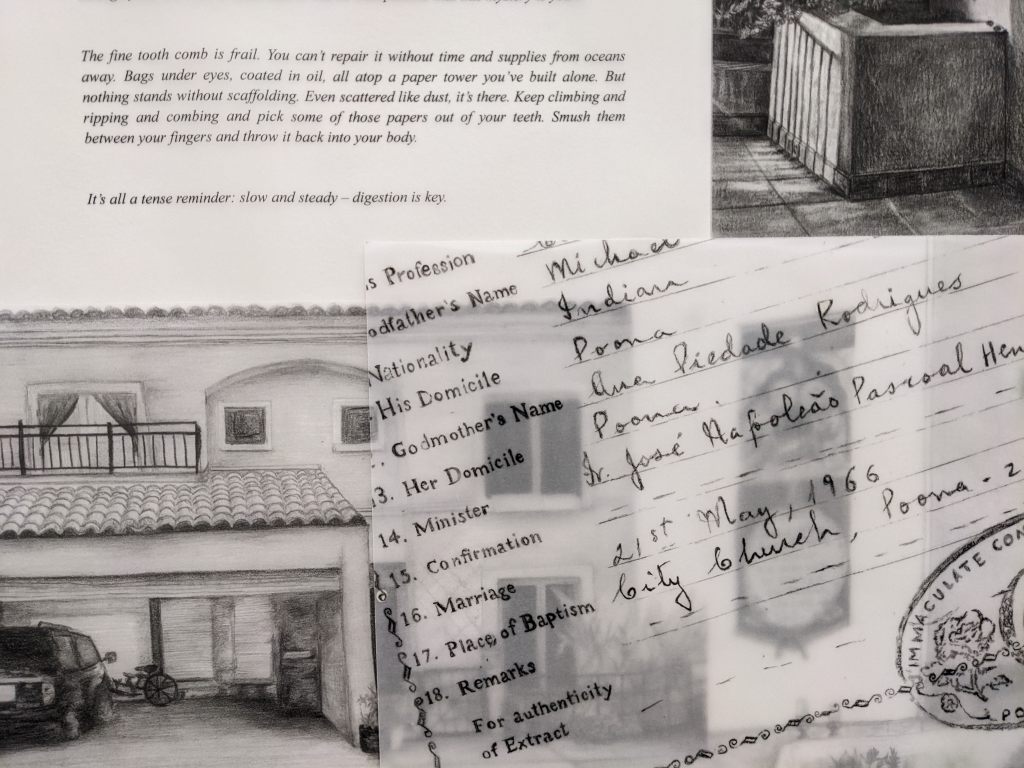 The fine tooth comb is frail. You can't repair it without time and supplies from oceans
away. Bags under eyes, coated in oil, all atop a paper tower you've built alone. But
nothing stands without scaffolding. Even scattered like dust, it's there. Keep climbing and
ripping and combing and pick some of those papers out of your teeth. Smush them
between your fingers and throw it back into your body.
It's all a tense reminder: slow and steady – digestion is key.
s Profession
odfather's Name Michael
Nationality Indian
His Domicile Poona
Godmother's Name Ana Piedade Rodrigues
13. Her Domicile Poona.
14. Minister Fr. José Napoleão Pascoal Hen
15. Confirmation
16. Marriage 21st May, 1966
17. Place of Baptism City Church, Poona - 2
18. Remarks
For authenticity
of Extract
IMMACULATE CON
PO